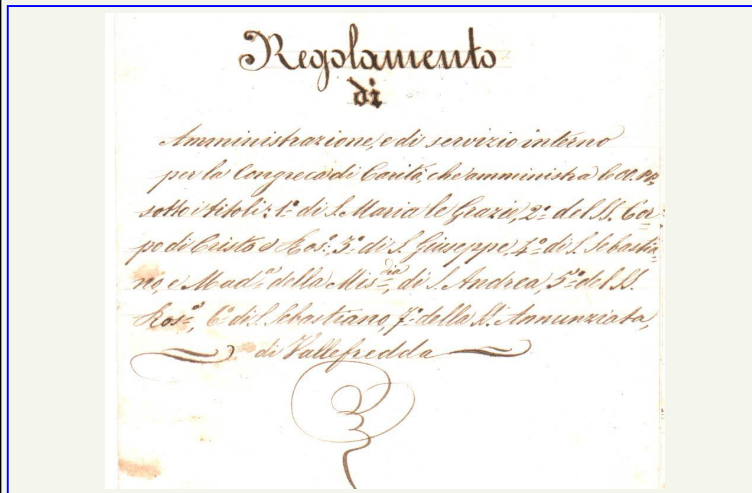 Regolamento
di
Amministrazione, e di servizio interno
per la Congreca di Carità, che amministra le OO. PP.
sotto i titoli: 1º di S. Maria le Grazie, 2º del SS. Cor-
po di Cristo e Ros.º, 3º di S. Giuseppe, 4º di S. Sebastia-
no, e Mad.ª della Mis.dia, di S. Andrea, 5º del SS.
Ros.º, 6º di S. Sebastiano, 7º della SS. Annunziata,
di Vallefredda